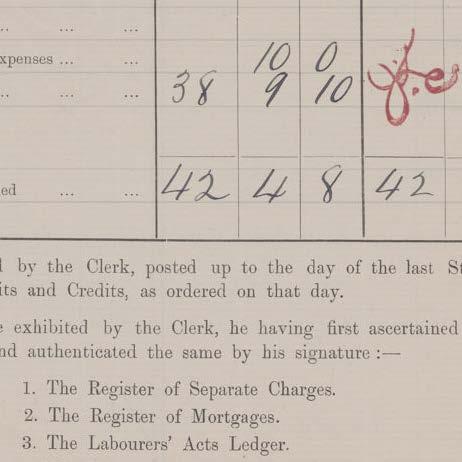 ... ... ...
xpenses ... ... 10 0
.. ... ... 38 9 10
ed ... ... 42 4 8 42
d by the Clerk, posted up to the day of the last St
its and Credits, as ordered on that day.
e exhibited by the Clerk, he having first ascertained
nd authenticated the same by his signature :—
1. The Register of Separate Charges.
2. The Register of Mortgages.
3. The Labourers' Acts Ledger.